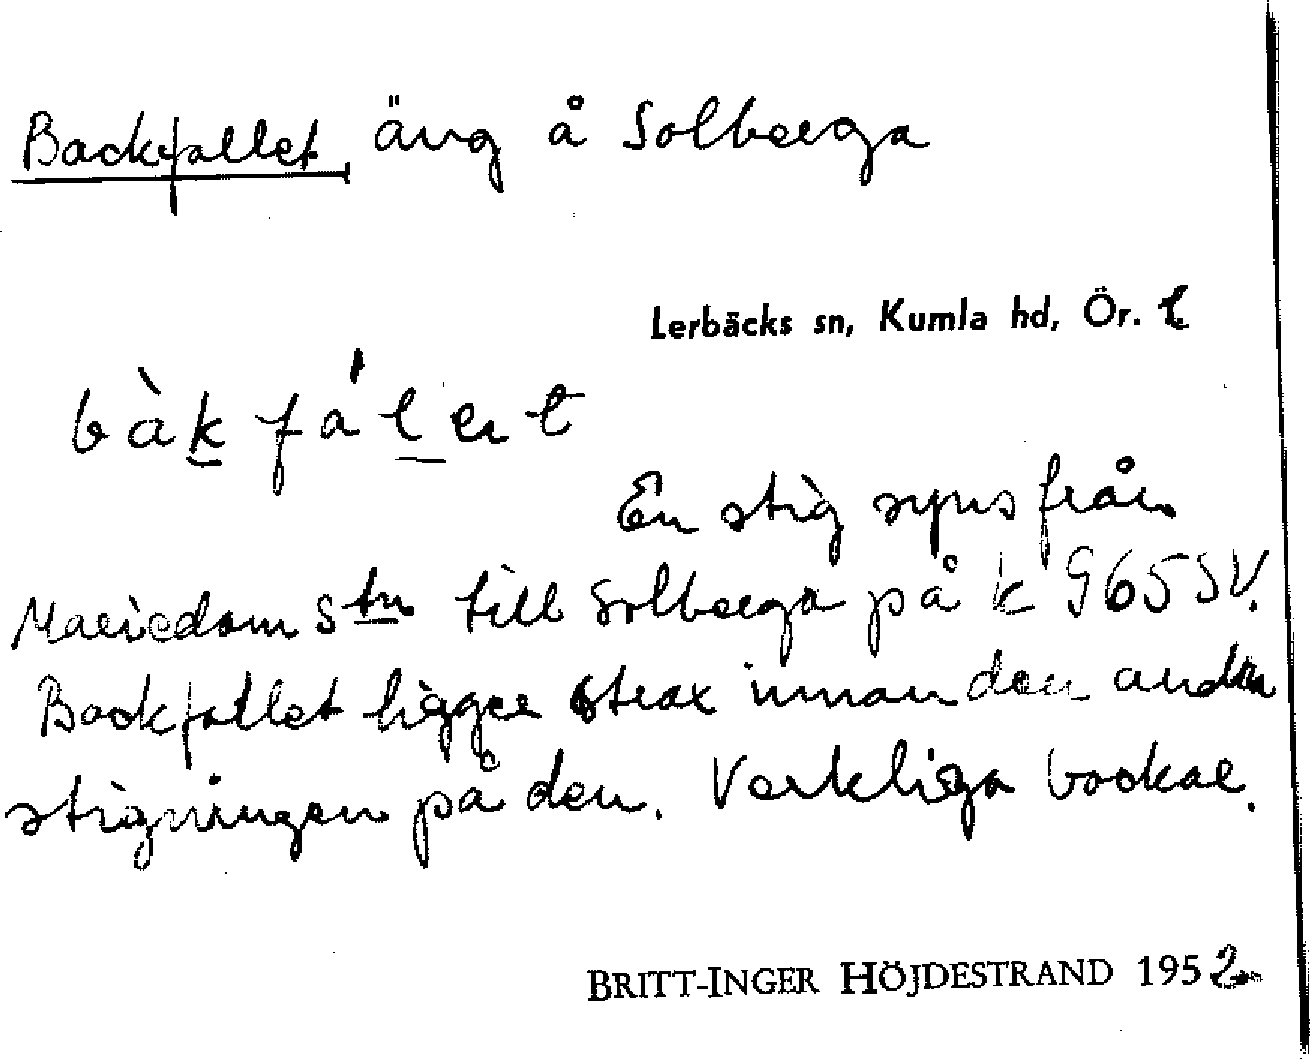 Backfallet, äng å Solberga
Lerbäcks sn, Kumla hd, Ör. l
bàk fálet
En stig syns från
Mariedam stn till Solberga på k 965 SV.
Backfallet ligger strax innan den andra
stigningen på den. Verkliga backar.
BRITT-INGER HÖJDESTRAND 1952